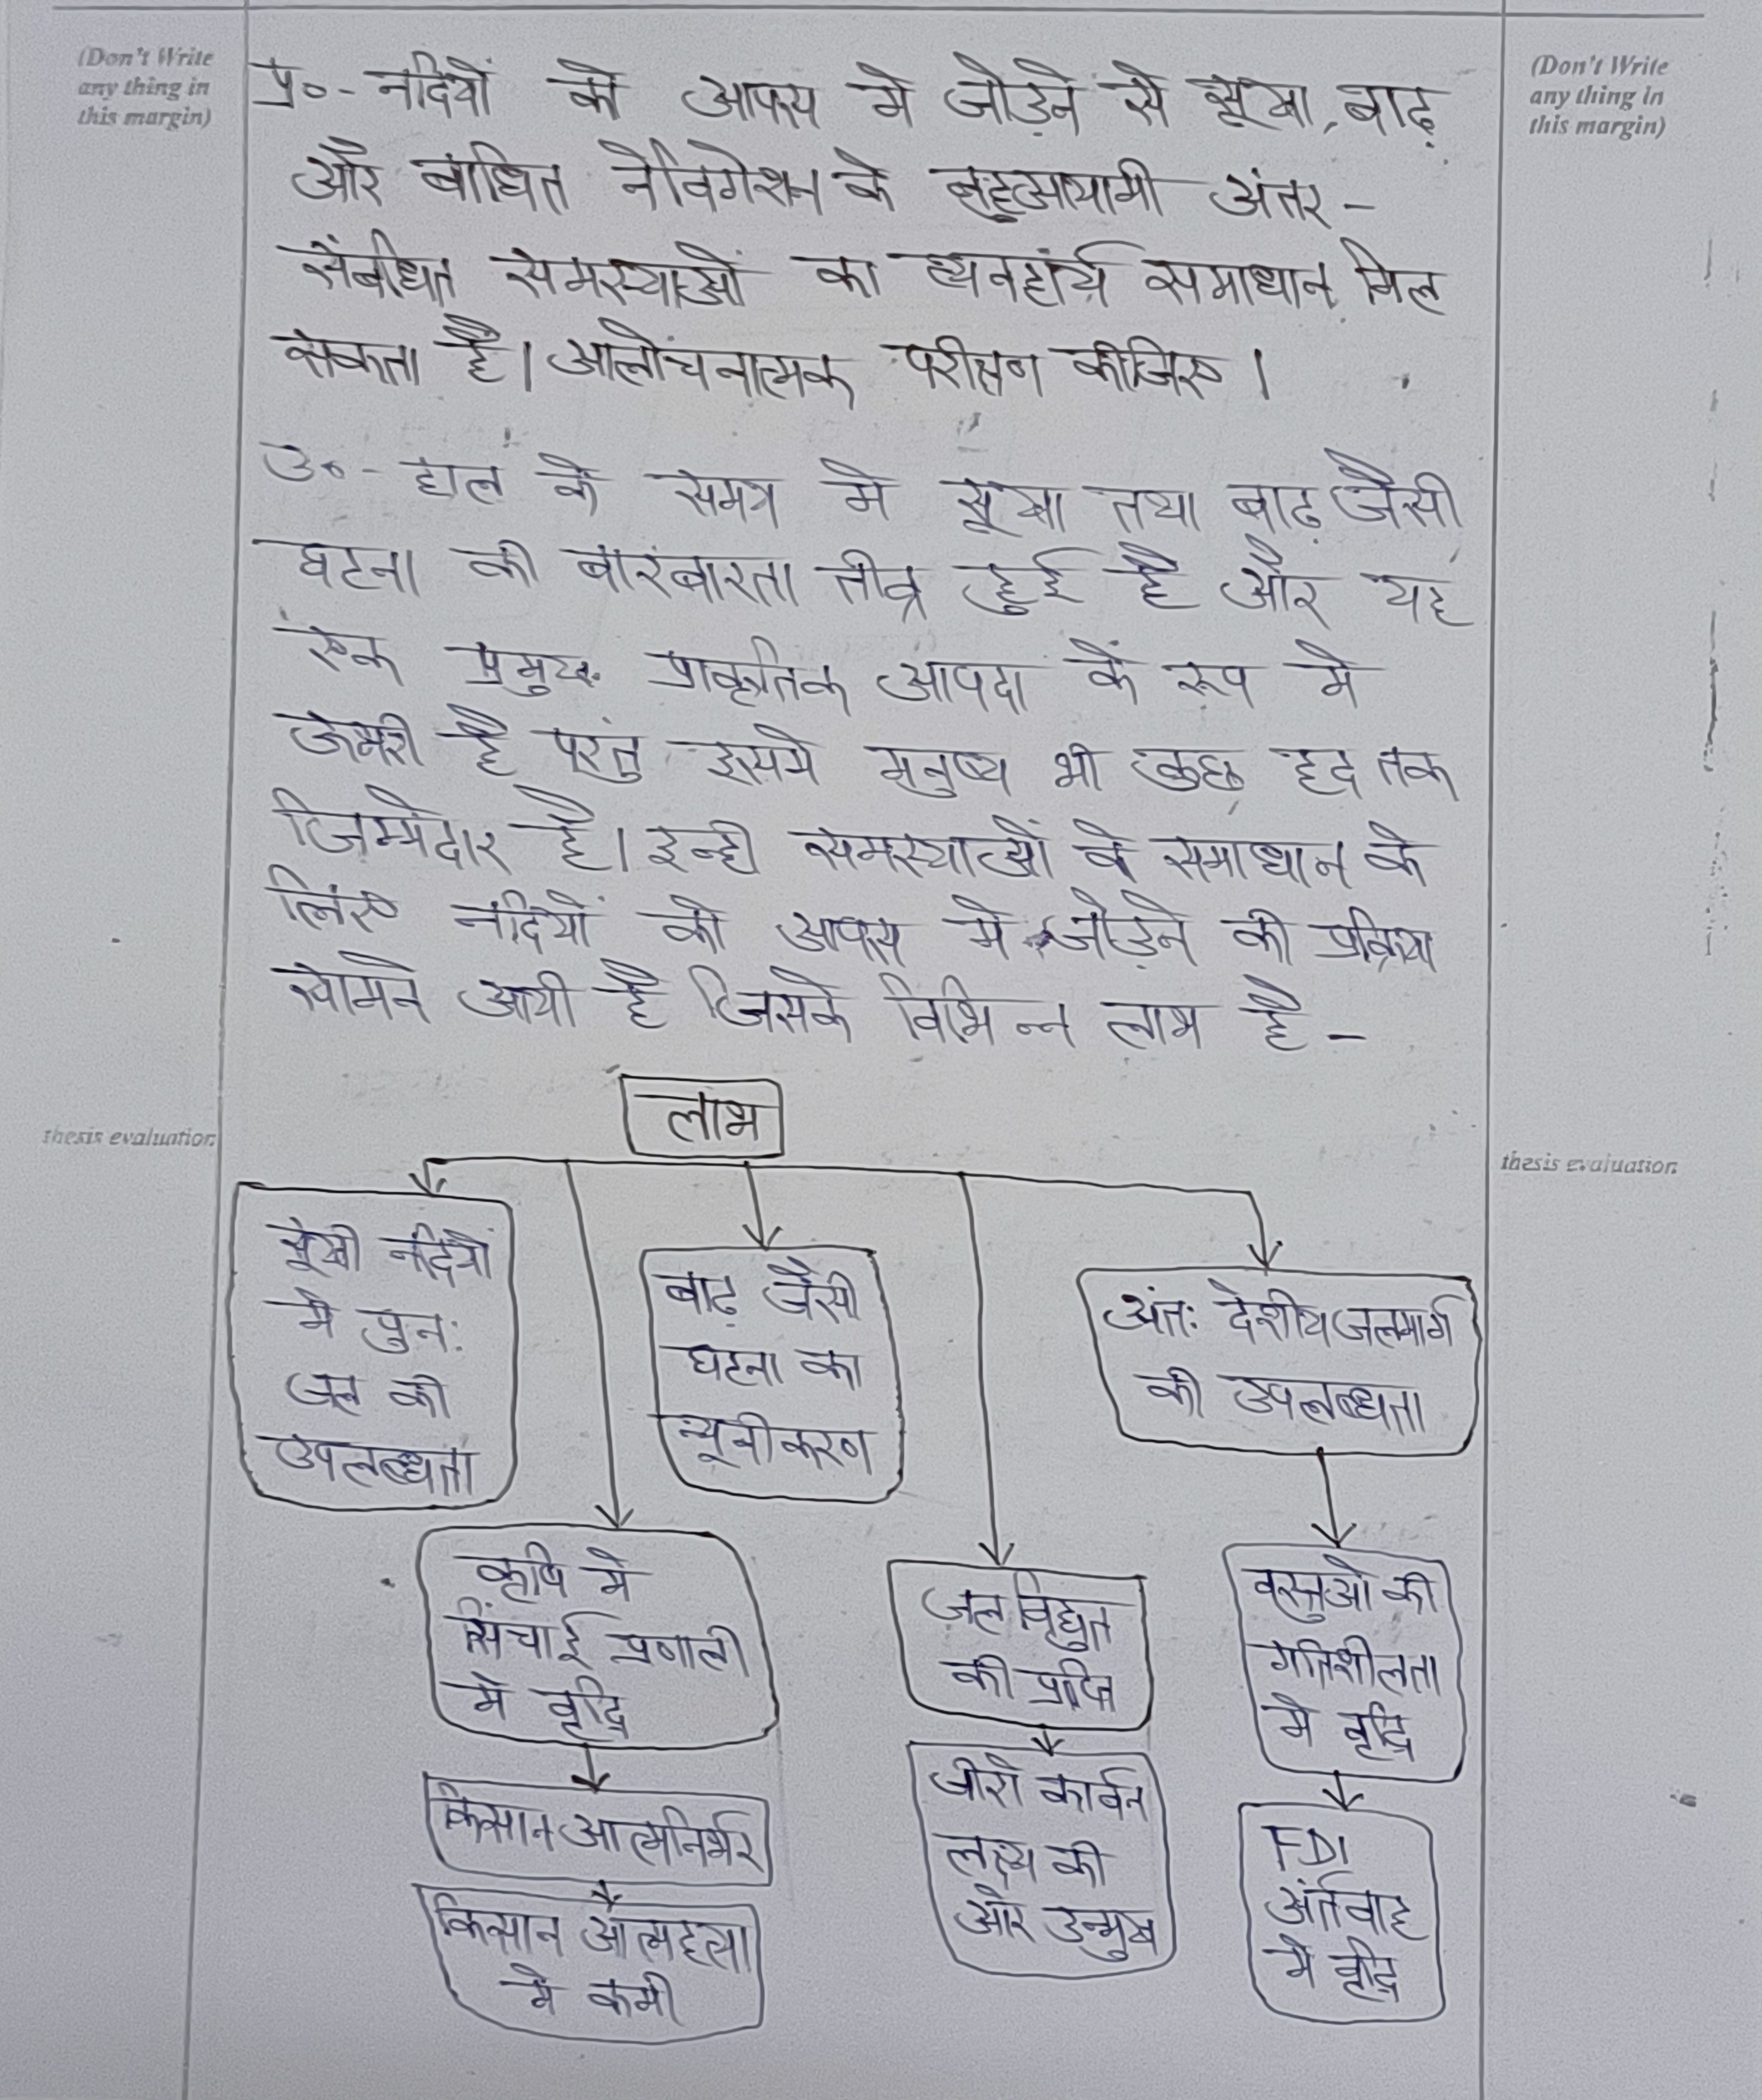 (Don't Write
any thing in
this margin)
(Don't Write
any thing in
this margin)
प्र०- नदियों को आपस मे जोड़ने से सूखा, बाढ़
और बाधित नेविगेशन के बहुआयामी अंतर-
संबंधित समस्याओं का व्यवहार्य समाधान मिल
सकता है। आलोचनात्मक परीक्षण कीजिए।
उ०- हाल के समय मे सूखा तथा बाढ़ जैसी
घटना की बारंबारता तीव्र हुई है और यह
एक प्रमुख प्राकृतिक आपदा के रूप मे
ऊभरी है परंतु इसमे मनुष्य भी कुछ हद तक
जिम्मेदार है। इन्ही समस्याओं के समाधान के
लिए नदियों को आपस मे जोड़ने की प्रक्रिया
सामने आयी है जिसके विभिन्न लाभ है-
thesis evaluation
thesis evaluation
लाभ
सूखी नदियों
मे पुनः
जल की
उपलब्धता
बाढ़ जैसी
घटना का
न्यूनीकरण
अंतः देशीय जलमार्ग
की उपलब्धता
कृषि मे
सिंचाई प्रणाली
मे वृद्धि
किसान आत्मनिर्भर
किसान आत्महत्या
मे कमी
जल विद्युत
की प्राप्ति
जीरो कार्बन
लक्ष्य की
ओर उन्मुख
वस्तुओ की
गतिशीलता
मे वृद्धि
FDI
अंर्तवाह
मे वृद्धि